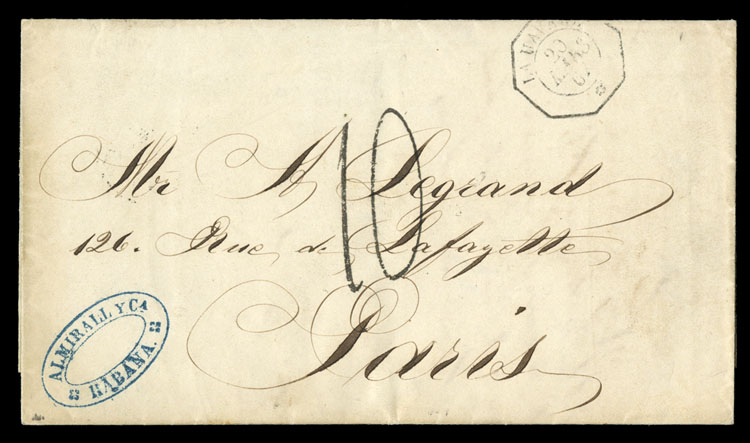 LA HABANE
20
10
Mr A Legrand
126. Rue de Lafayette
Paris
ALMIRALL Y Ca
HABANA.